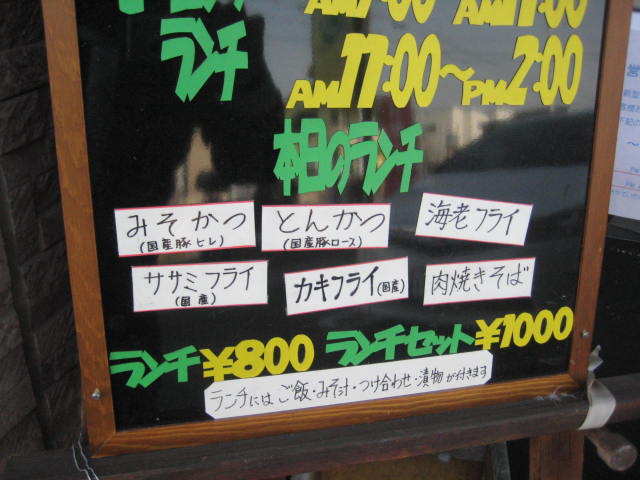 ランチ
AM11:00～PM2:00
本日のランチ
みそかつ
(国産豚ヒレ)
とんかつ
(国産豚ロース)
海老フライ
ササミフライ
(国産)
カキフライ(国産)
肉焼きそば
ランチ¥800 ランチセット¥1000
ランチには ご飯・みそ汁・つけ合わせ・漬物が付きます